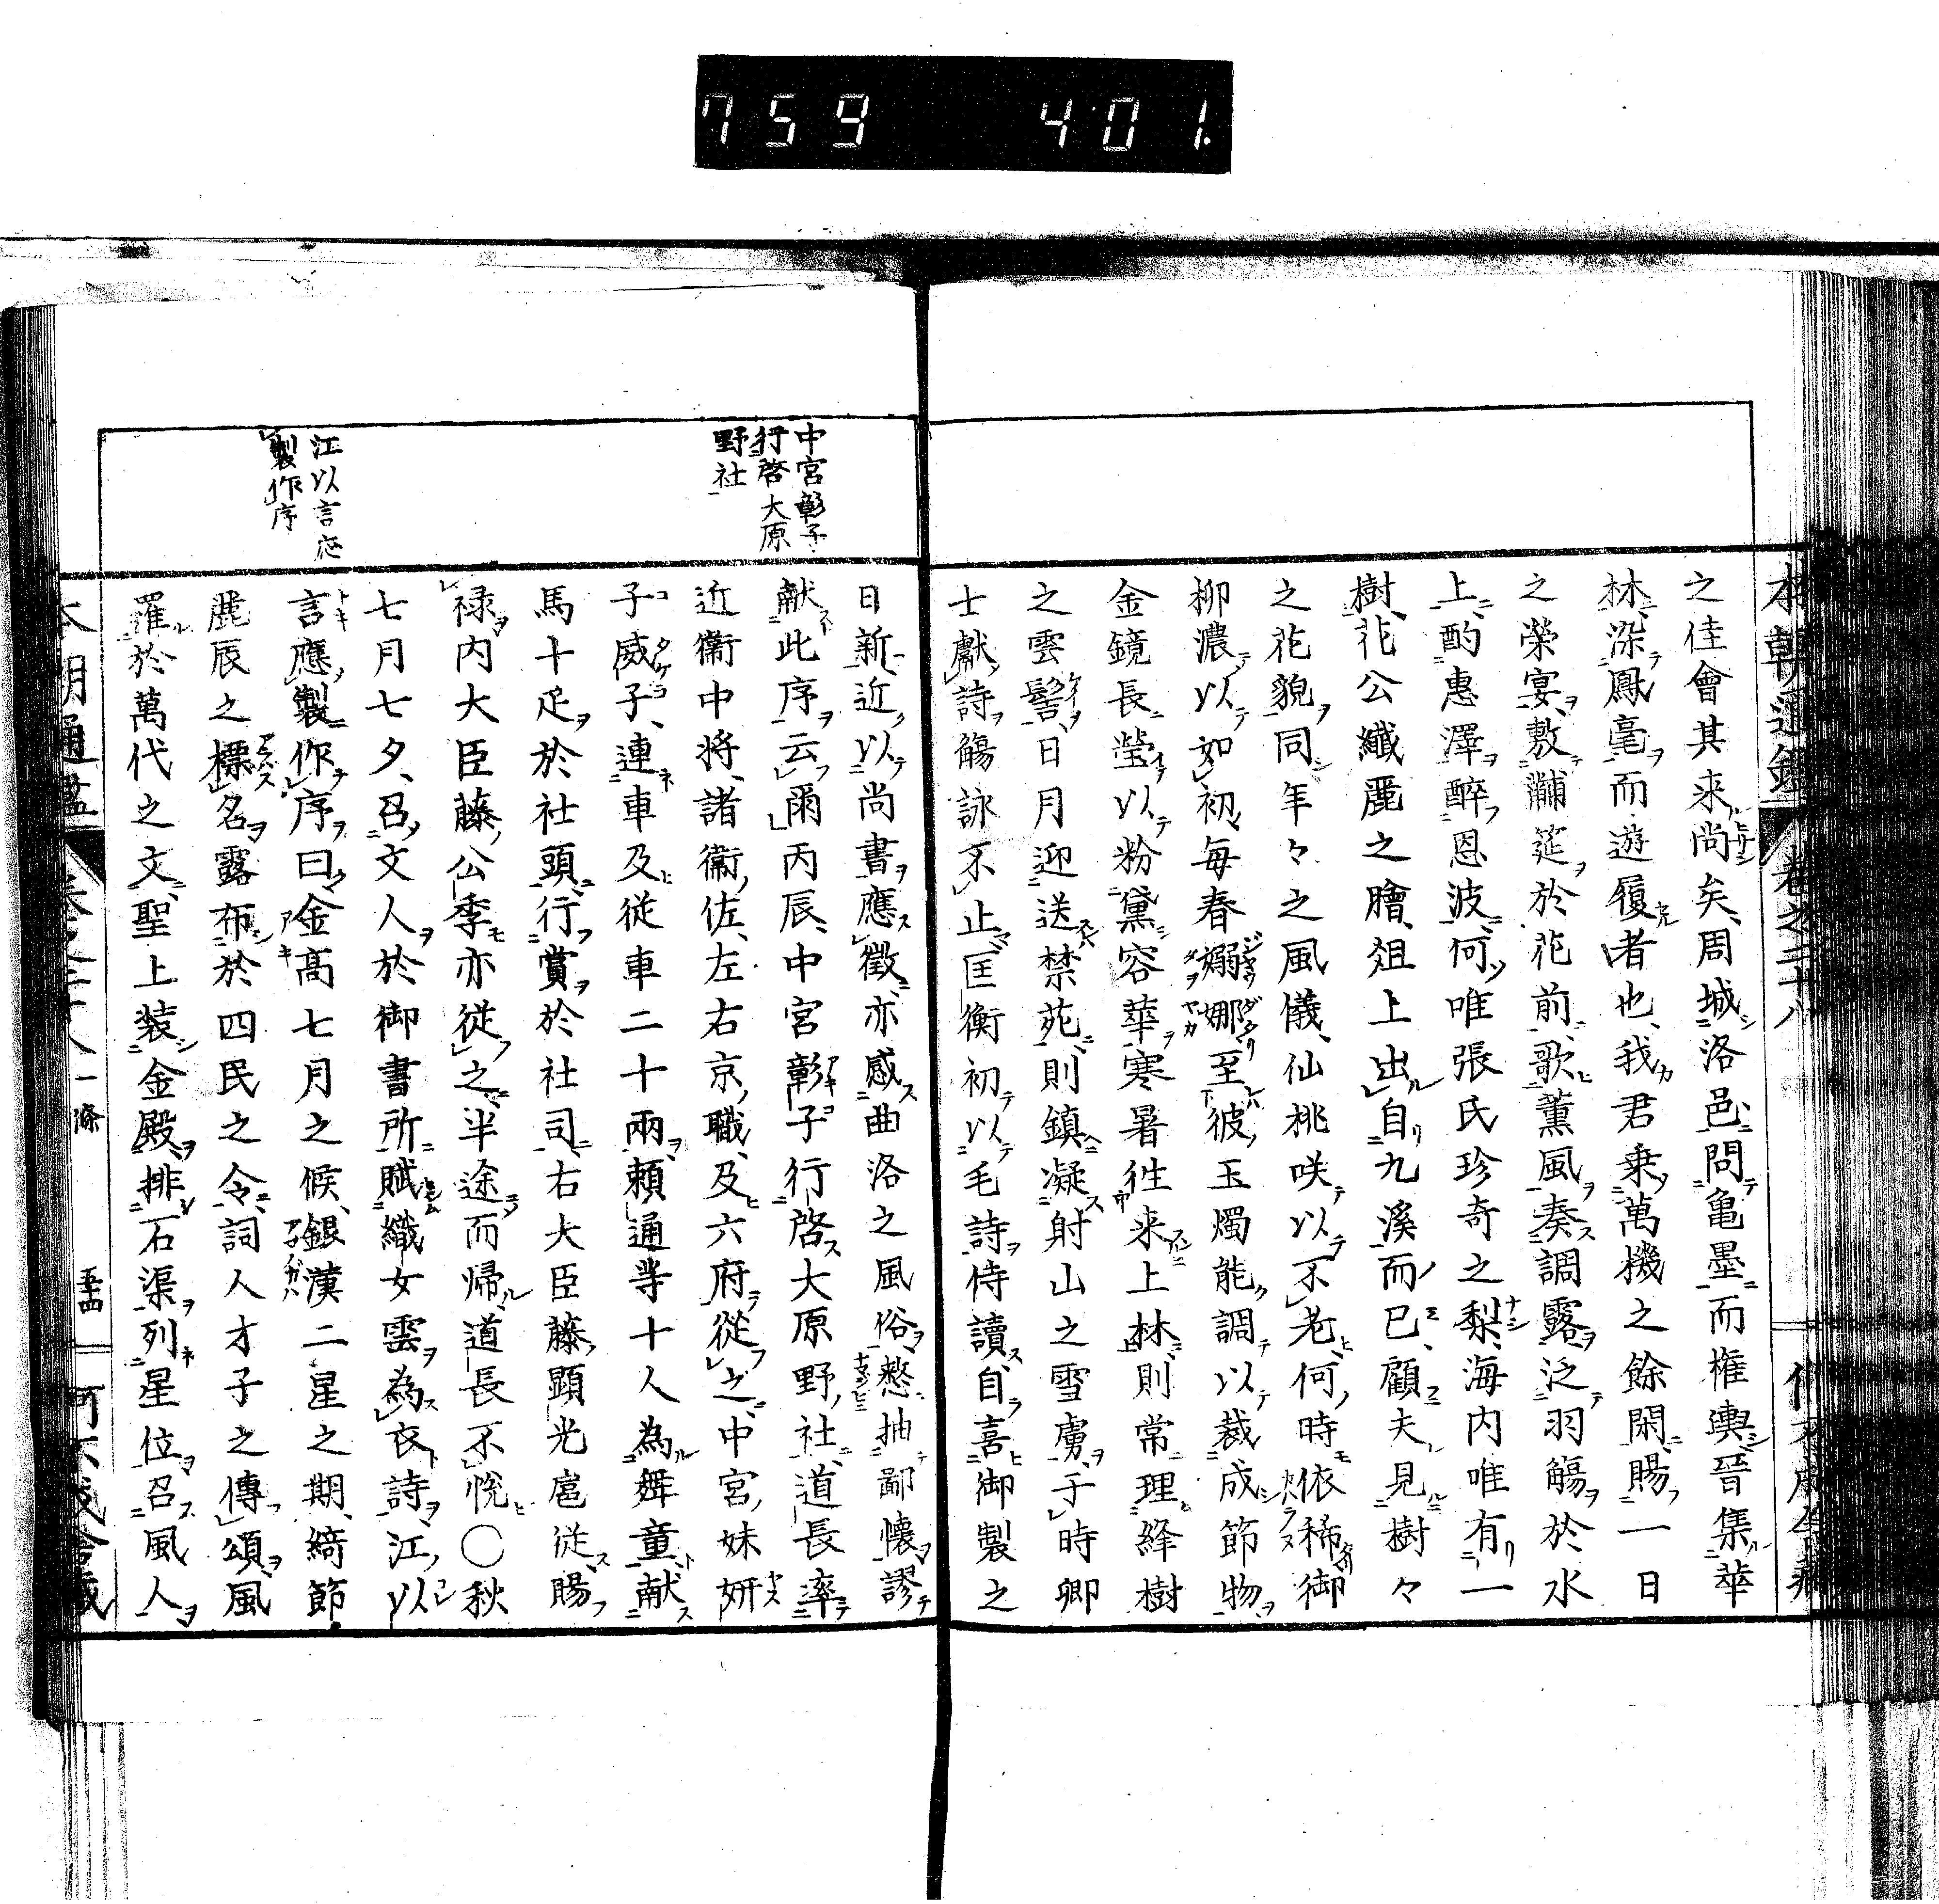 759 401.
本朝通鑑 卷之二十八
之佳會其来尚矣、周城洛邑、問亀墨而権輿、晉集華
林、染鳳毫而遊履者也、我君乗萬機之餘閑、賜一日
之榮宴、敷黼筵於花前、歌薫風奏調露、泛羽觴於水
上、酌惠澤醉恩波、何唯張氏珍奇之梨、海内唯有一
樹、花公纖麗之膾、爼上出自九溪而已、顧夫見樹々
之花貌、同年々之風儀、仙桃咲以不老、何時依稀御
柳濃以如初、毎春嫋娜至彼玉燭能調以裁成節物、
金鏡長瑩以粉黛容華、寒暑徃来上林、則常理絳樹
之雲髻、日月迎送禁苑、則鎮凝射山之雪膚、于時卿
士獻詩觴詠不止匡衡初以毛詩侍讀、自喜御製之
日新、近以尚書應徵、亦感曲洛之風俗、憖抽鄙懷謬
献此序云爾丙辰、中宮彰子行啓大原野社、道長率
近衞中将、諸衞佐、左右京職、及六府從之、中宮妹妍
子威子、連車及従車二十兩、頼通等十人為舞童献
馬十疋於社頭、行賞於社司右大臣藤顕光扈従、賜
禄内大臣藤公季亦従之、半途而帰道長不悦〇秋
七月七夕、召文人於御書所賦織女雲為衣詩、江以
言應製作序曰金髙七月之候、銀漢二星之期、綺節
麗辰之標名露布於四民之令詞人才子之傳頌、風
羅於萬代之文、聖上装金殿、排石渠列星位召風人
中宮彰子
行啓大原
野社
江以言応
製作序
本朝通鑑 卷之二十八 一條 五四